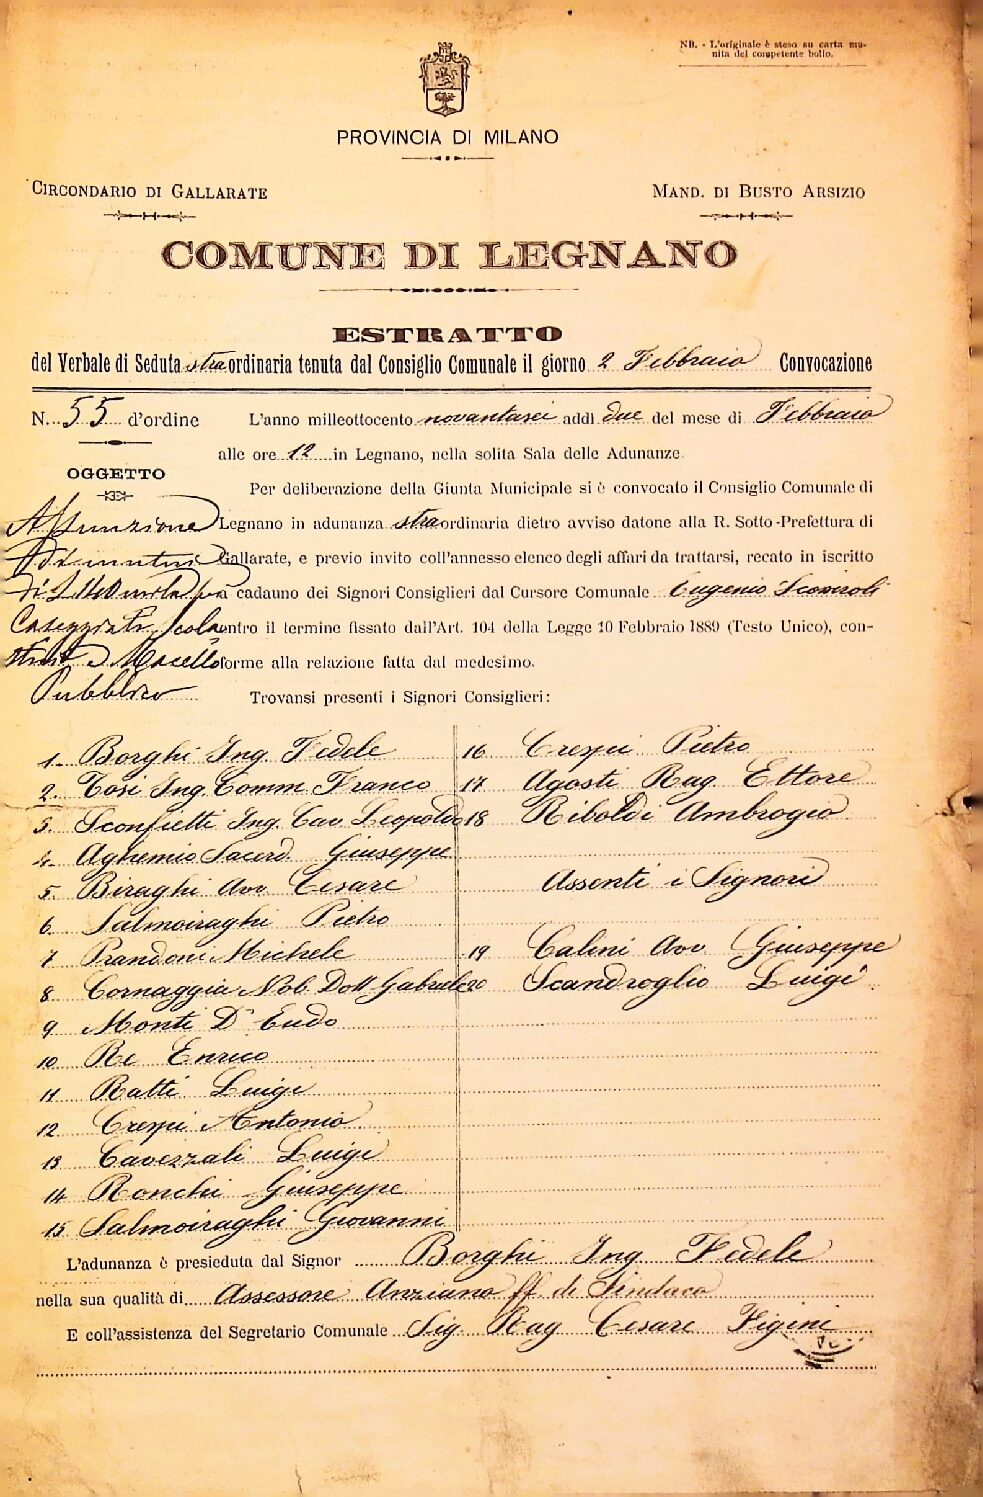 NB. - L'originale è steso su carta mu-
nita del competente bollo.
PROVINCIA DI MILANO
CIRCONDARIO DI GALLARATE
MAND. DI BUSTO ARSIZIO
COMUNE DI LEGNANO
ESTRATTO
del Verbale di Seduta straordinaria tenuta dal Consiglio Comunale il giorno 2 Febbraio Convocazione
N. 55 d'ordine
OGGETTO
Assunzione
di
Caseggiato Scola
Macello
Pubblico
L'anno milleottocento novantasei addì due del mese di Febbraio
alle ore 12 in Legnano, nella solita Sala delle Adunanze.
Per deliberazione della Giunta Municipale si è convocato il Consiglio Comunale di
Legnano in adunanza straordinaria dietro avviso datone alla R. Sotto-Prefettura di
Gallarate, e previo invito coll'annesso elenco degli affari da trattarsi, recato in iscritto
a cadauno dei Signori Consiglieri dal Cursore Comunale Eugenio
entro il termine fissato dall'Art. 104 della Legge 10 Febbraio 1889 (Testo Unico), con-
forme alla relazione fatta dal medesimo.
Trovansi presenti i Signori Consiglieri:
1. Borghi Ing. Fedele
2. Tosi Ing. Comm Franco
3. Sconfietti Ing. Cav Leopoldo
4. Aghemio Sacerd. Giuseppe
5. Biraghi Avv Cesare
6 Salmoiraghi Pietro
7 Prandoni Michele
8 Cornaggia Nob. Dott Gabriele
9 Monti Dr Eudo
10 Re Enrico
11 Ratti Luigi
12 Crespi Antonio
13 Cavezzali Luigi
14 Ronchi Giuseppe
15 Salmoiraghi Giovanni
16 Crespi Pietro
17 Agosti Rag. Ettore
18 Riboldi Ambrogio
Assenti i Signori
19 Calini Avv. Giuseppe
20 Scandroglio Luigi
L'adunanza è presieduta dal Signor Borghi Ing Fedele
nella sua qualità di Assessore Anziano ff. di Sindaco
E coll'assistenza del Segretario Comunale Sig Rag Cesare Figini